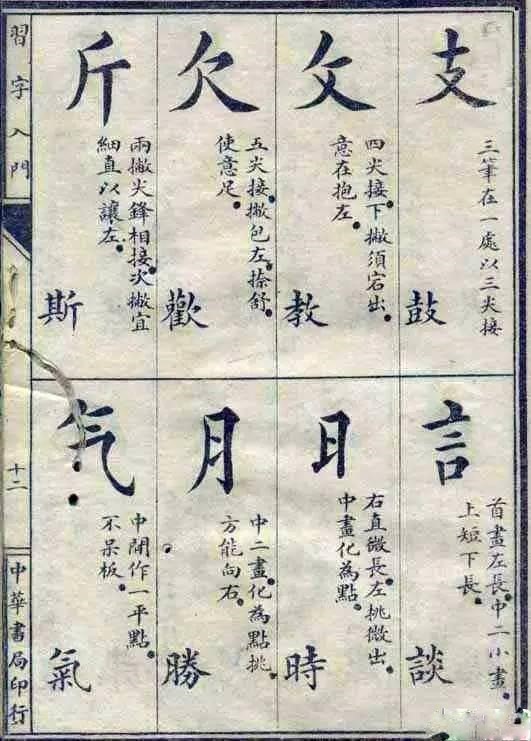 支
三筆在一處以三尖接
鼓
攵
四尖接下撇須宕出
意在抱左
教
欠
五尖接撇包左捺舒
使意足
歡
斤
兩撇尖鋒相接次撇宜
細直以讓左
斯
言
首畫左長中二小畫
上短下長
談
日
右直微長左挑微出
中畫化為點
時
月
中二畫化為點挑
方能向右
勝
气
中間作一平點
不呆板
氣
習字入門
十二
中華書局印行